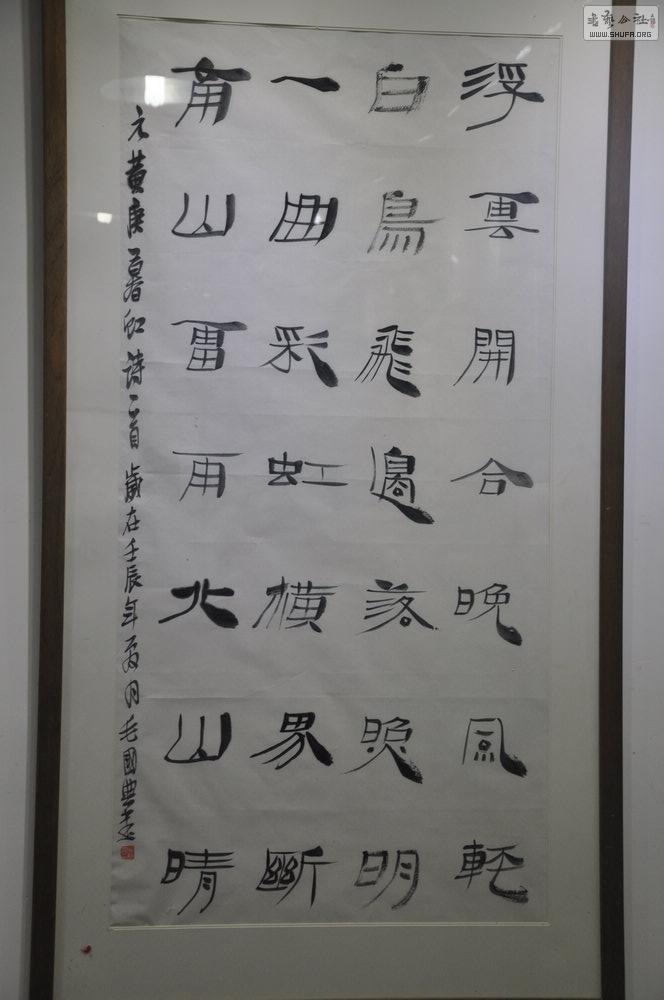 書法公社
WWW.SHUFA.ORG
浮雲開合晚風輕
白鳥飛邊落照明
一曲彩虹橫界斷
南山雷雨北山晴
元黃庚暮虹詩一首 歲在壬辰年月毛國典書